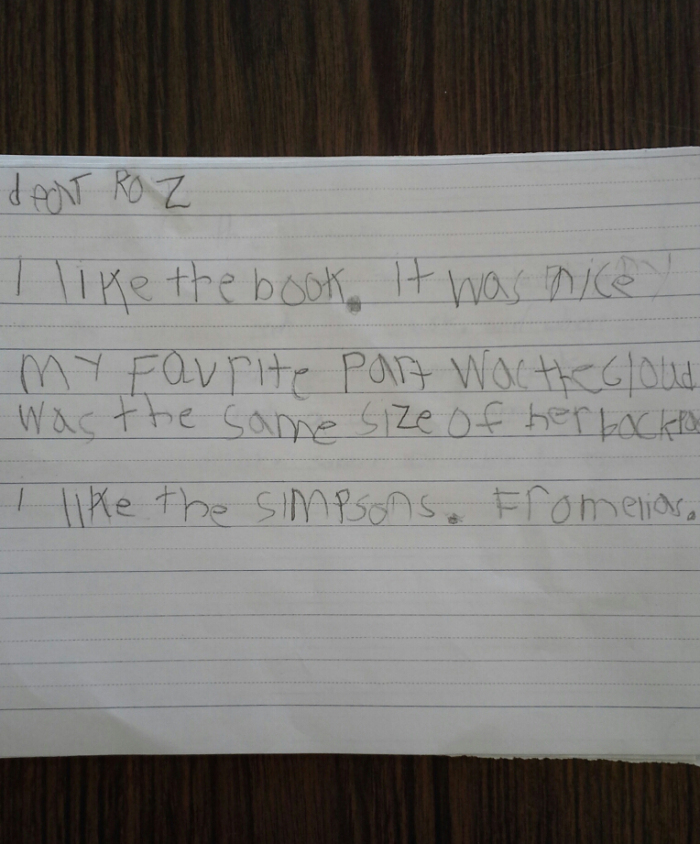 RO Z
I like the book. It was nice
MY FavRite Part Was the Cloud
was the same size of her backpa
I like the SIMPSONS. From elias.